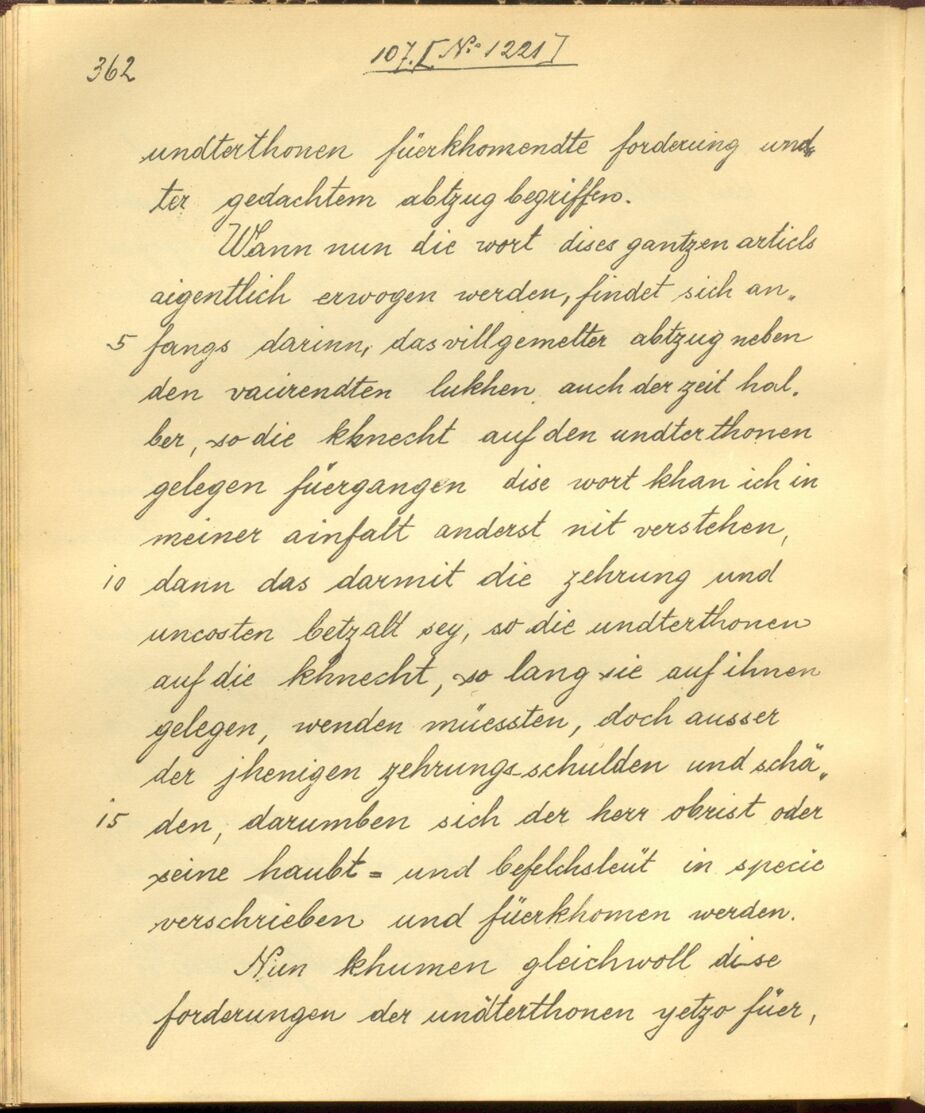 362
107. [N° 1221]
undterthonen füerkhomendte forderung und„
ter gedachtem abtzug begriffen.
Wann nun die wort dises gantzen articls
aigentlich erwogen werden, findet sich an„
5 fangs darinn, das villgemelter abtzug neben
den vacirendten lukhen auch der zeit hal„
ber, so die khnecht auf den undterthonen
gelegen füergangen dise wort khan ich in
meiner ainfalt anderst nit verstehen,
10 dann das darmit die zehrung und
uncosten betzalt sey, so die undterthonen
auf die khnecht, so lang sie auf ihnen
gelegen, wenden müessten, doch ausser
der jhenigen zehrungsschulden und schä„
15 den, darumben sich der herr obrist oder
seine haubt= und befelchsleüt in specie
verschrieben und füerkhomen werden.
Nun khumen gleichwoll dise
forderungen der undterthonen yetzo füer,